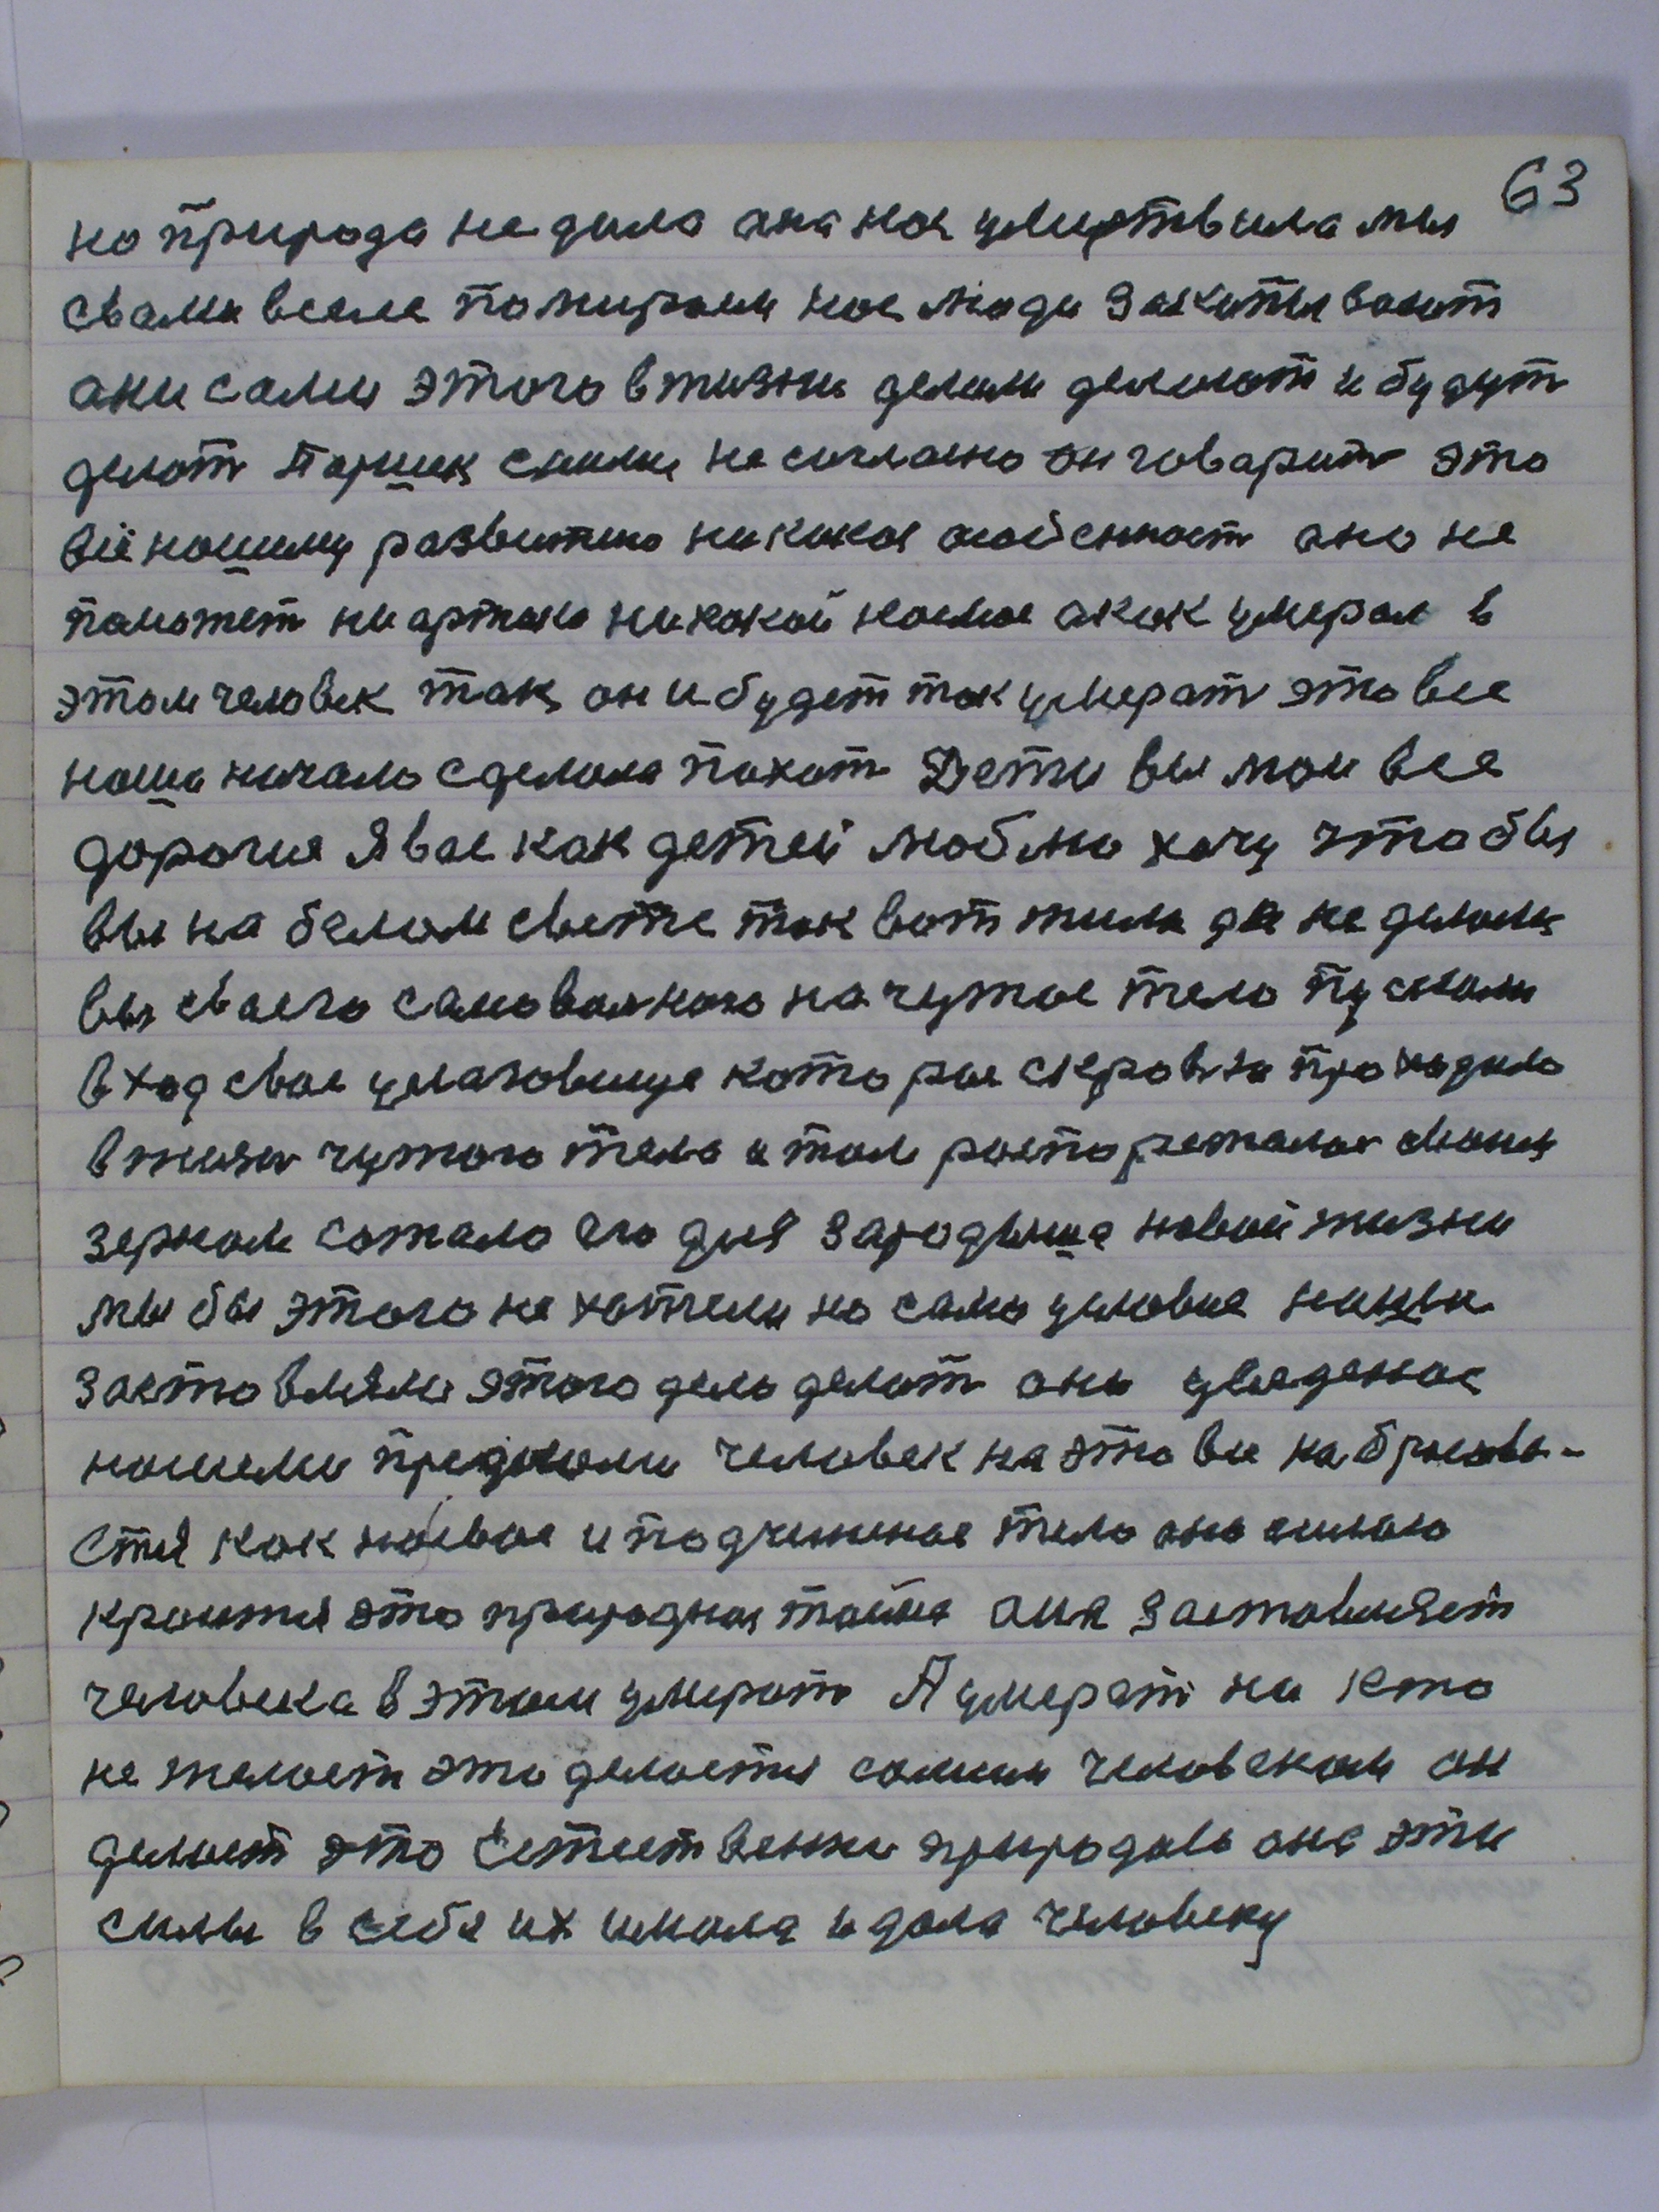 63
но природа не дала ана нас умиртвила мы
свами всеми помираем нас люди закапывают
ани сами этого в жизни делали делают и будут
делат Паршек сними не сагласно он говарит это
всё нашиму развитию никакая ано не
паможет ни артако никакой нации акак умерал в
этом человек так он и будет так умерат это все
наши начало сделала похот Дети вы маи все
дорагия Я вас как детей люблю хачу чтобы
вы на белом свете так вот жили да не делали
вы своего самоволного на чужое тело пускали
вход свае которая скровю праходила
в жизн чужого тела и там распорежалас сваим
зерном сажало его для зародыша новай жизни
мы бы этого не хатели но само условие нашы
заставляли этого дело делат ано уведеное
нашими предками человек на это все набрасовы-
стя как на свае и падчиненое тело ано силаю
кроится это природная тайна ана заставляет
человека в этим умерат А умерат ни кто
не желает это делается самим человеком он
делает это естественна природаю ана эти
силы в себе их имала и дала человеку